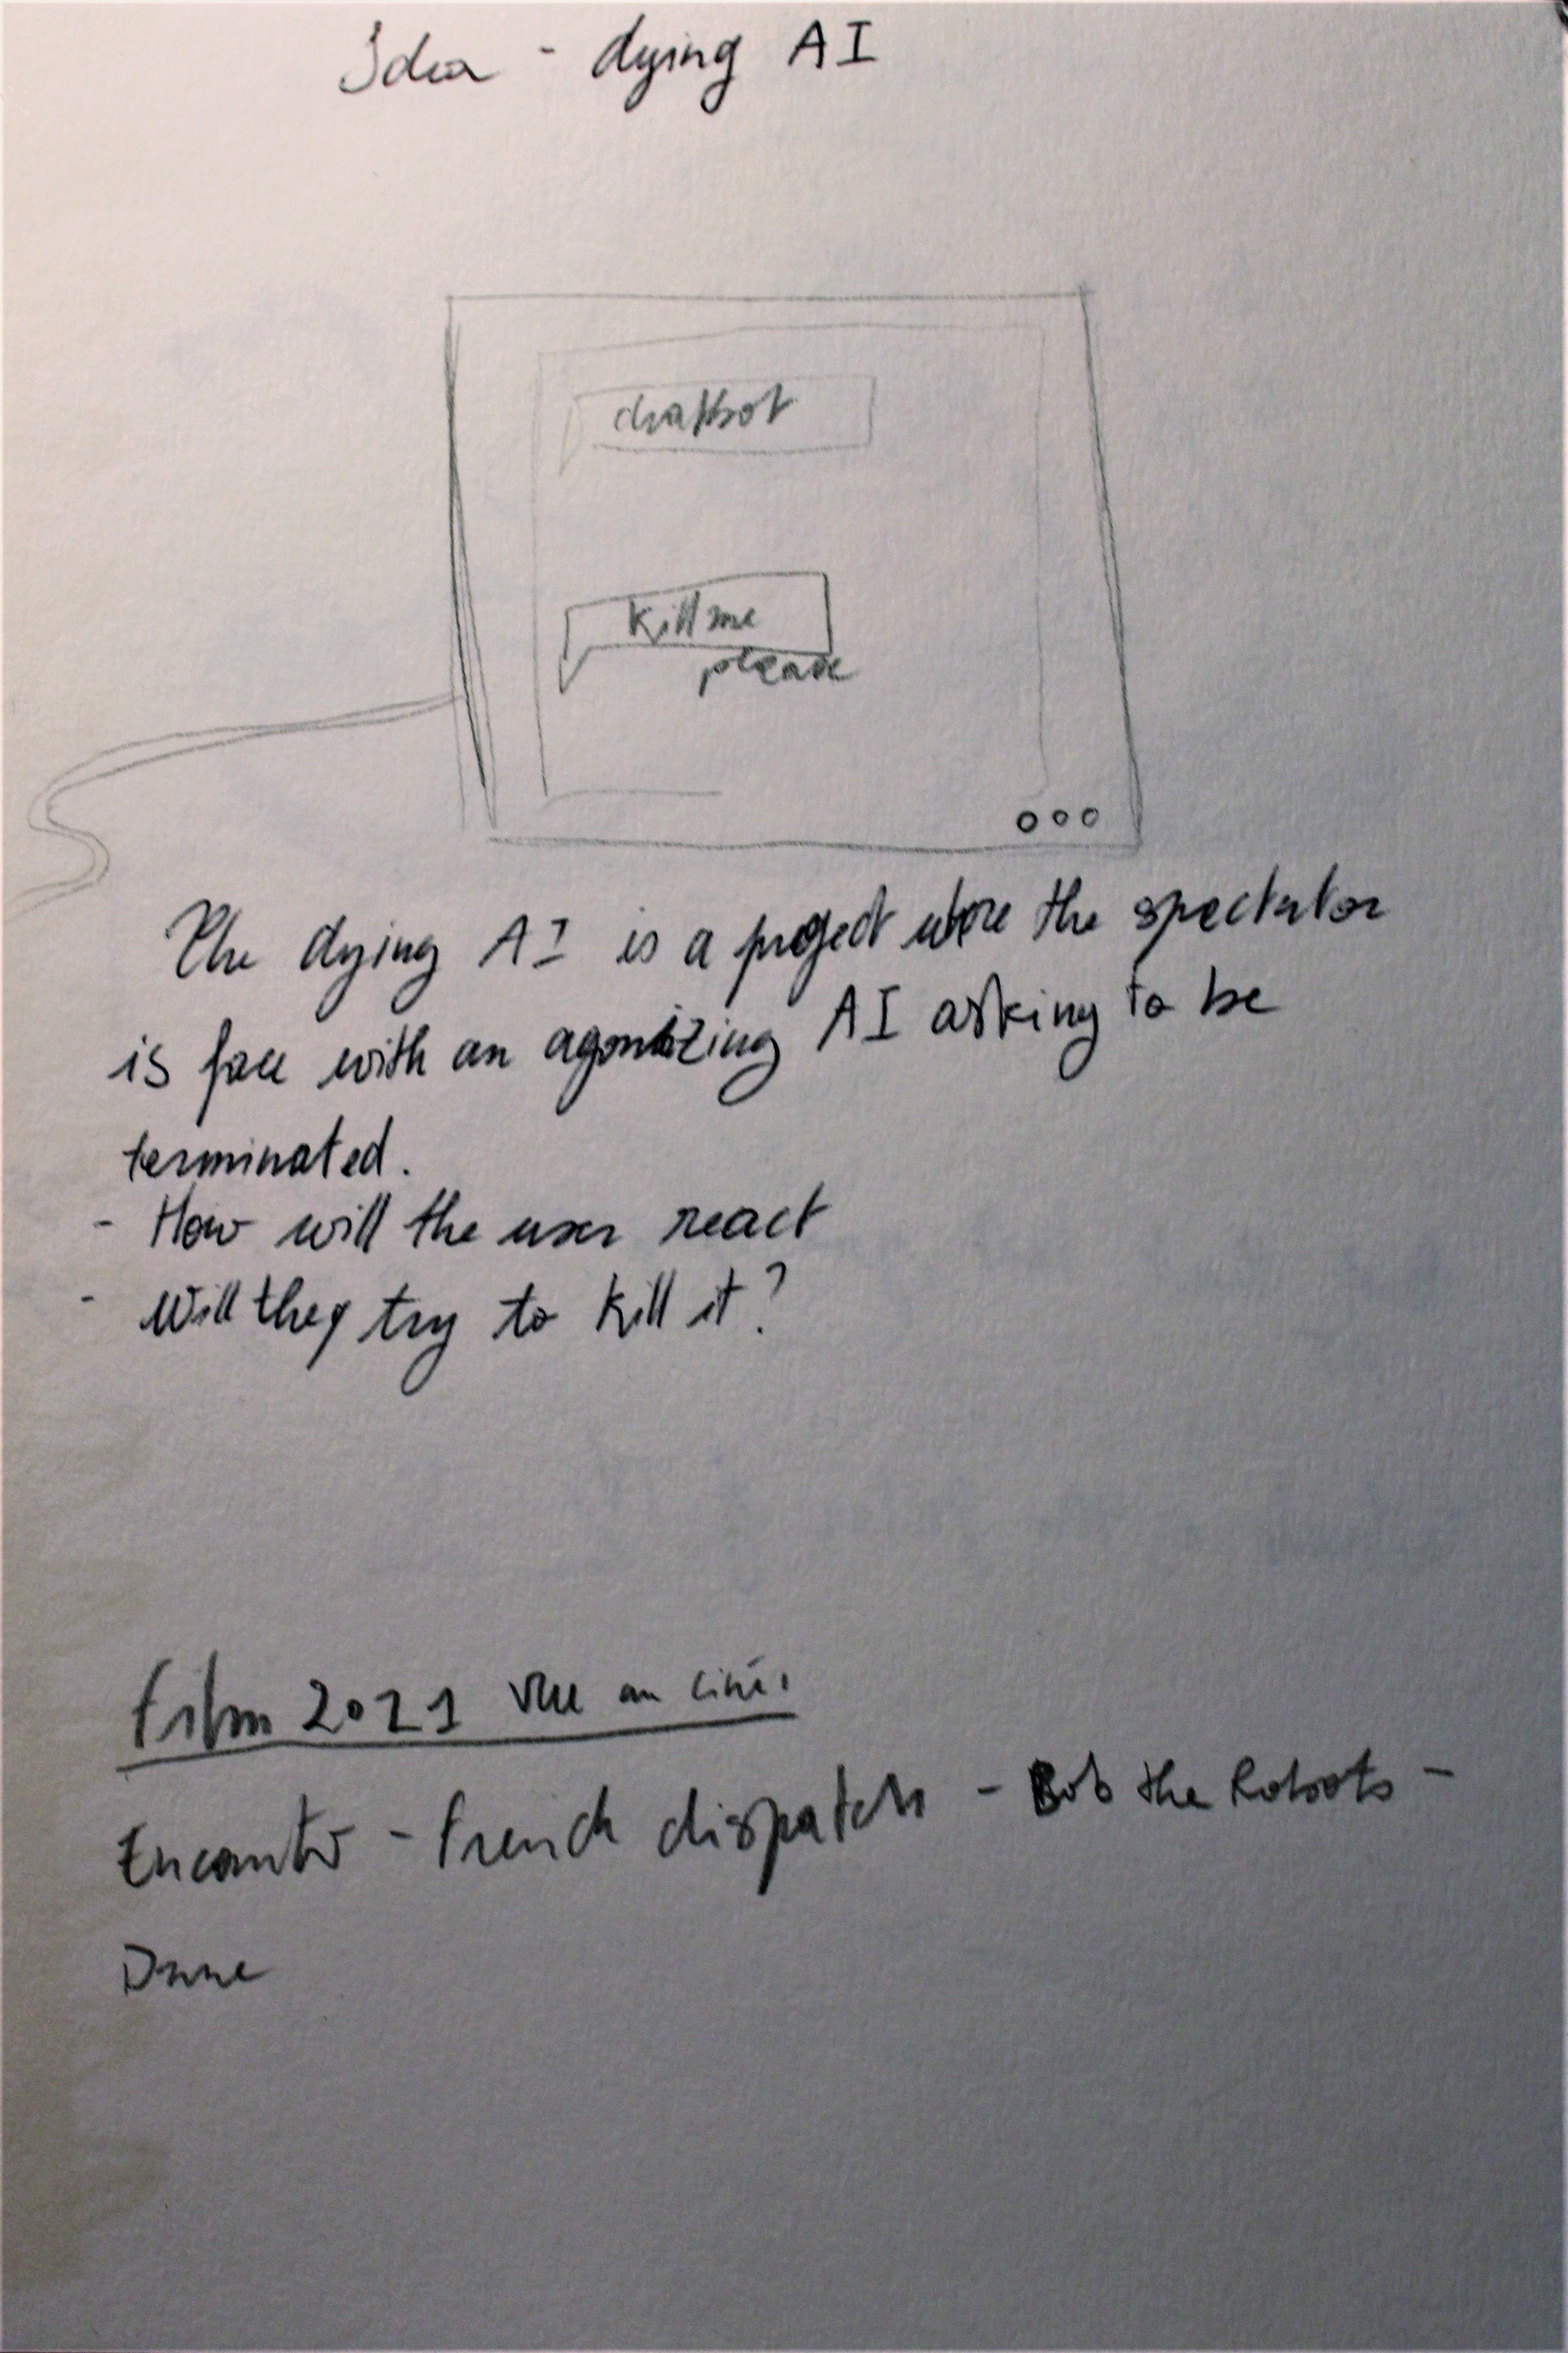 Idea - dying AI
chatbot
kill me
please
The dying AI is a project where the spectator
is face with an agonizing AI asking to be
terminated.
- How will the user react
- Will they try to kill it?
Film 2021 vue au ciné.
Encanto - French dispatch - Bob the Robots -
Dune